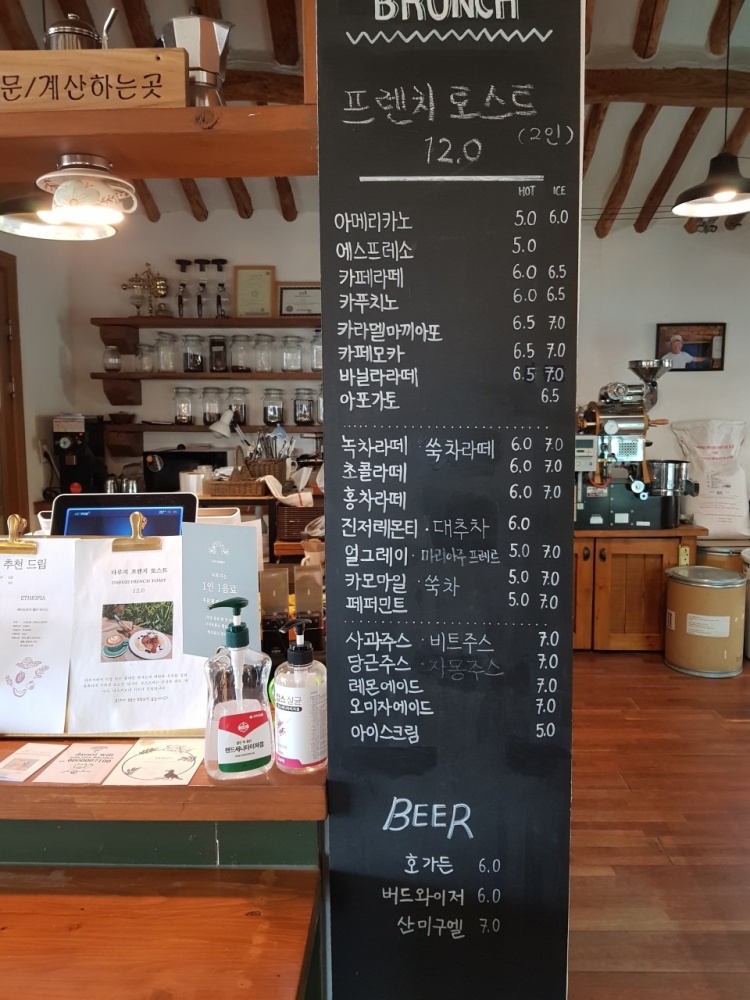 BRUNCH
문/계산하는곳
프렌치 토스트
12.0 (2인)
HOT ICE
아메리카노 5.0 6.0
에스프레소 5.0
카페라떼 6.0 6.5
카푸치노 6.0 6.5
카라멜마끼아또 6.5 7.0
카페모카 6.5 7.0
바닐라라떼 6.5 7.0
아포가토 6.5
녹차라떼 · 쑥차라떼 6.0 7.0
초콜라떼 6.0 7.0
홍차라떼 6.0 7.0
진저레몬티 · 대추차 6.0
얼그레이 · 마리아쥬 프레르 5.0 7.0
카모마일 · 쑥차 5.0 7.0
페퍼민트 5.0 7.0
사과주스 · 비트주스 7.0
당근주스 · 자몽주스 7.0
레몬에이드 7.0
오미자에이드 7.0
아이스크림 5.0
BEER
호가든 6.0
버드와이저 6.0
산미구엘 7.0
추천 드립
ETHIOPIA
프렌치 토스트
FRENCH TOAST
1인 1음료
핸드새니타이저겔
살균